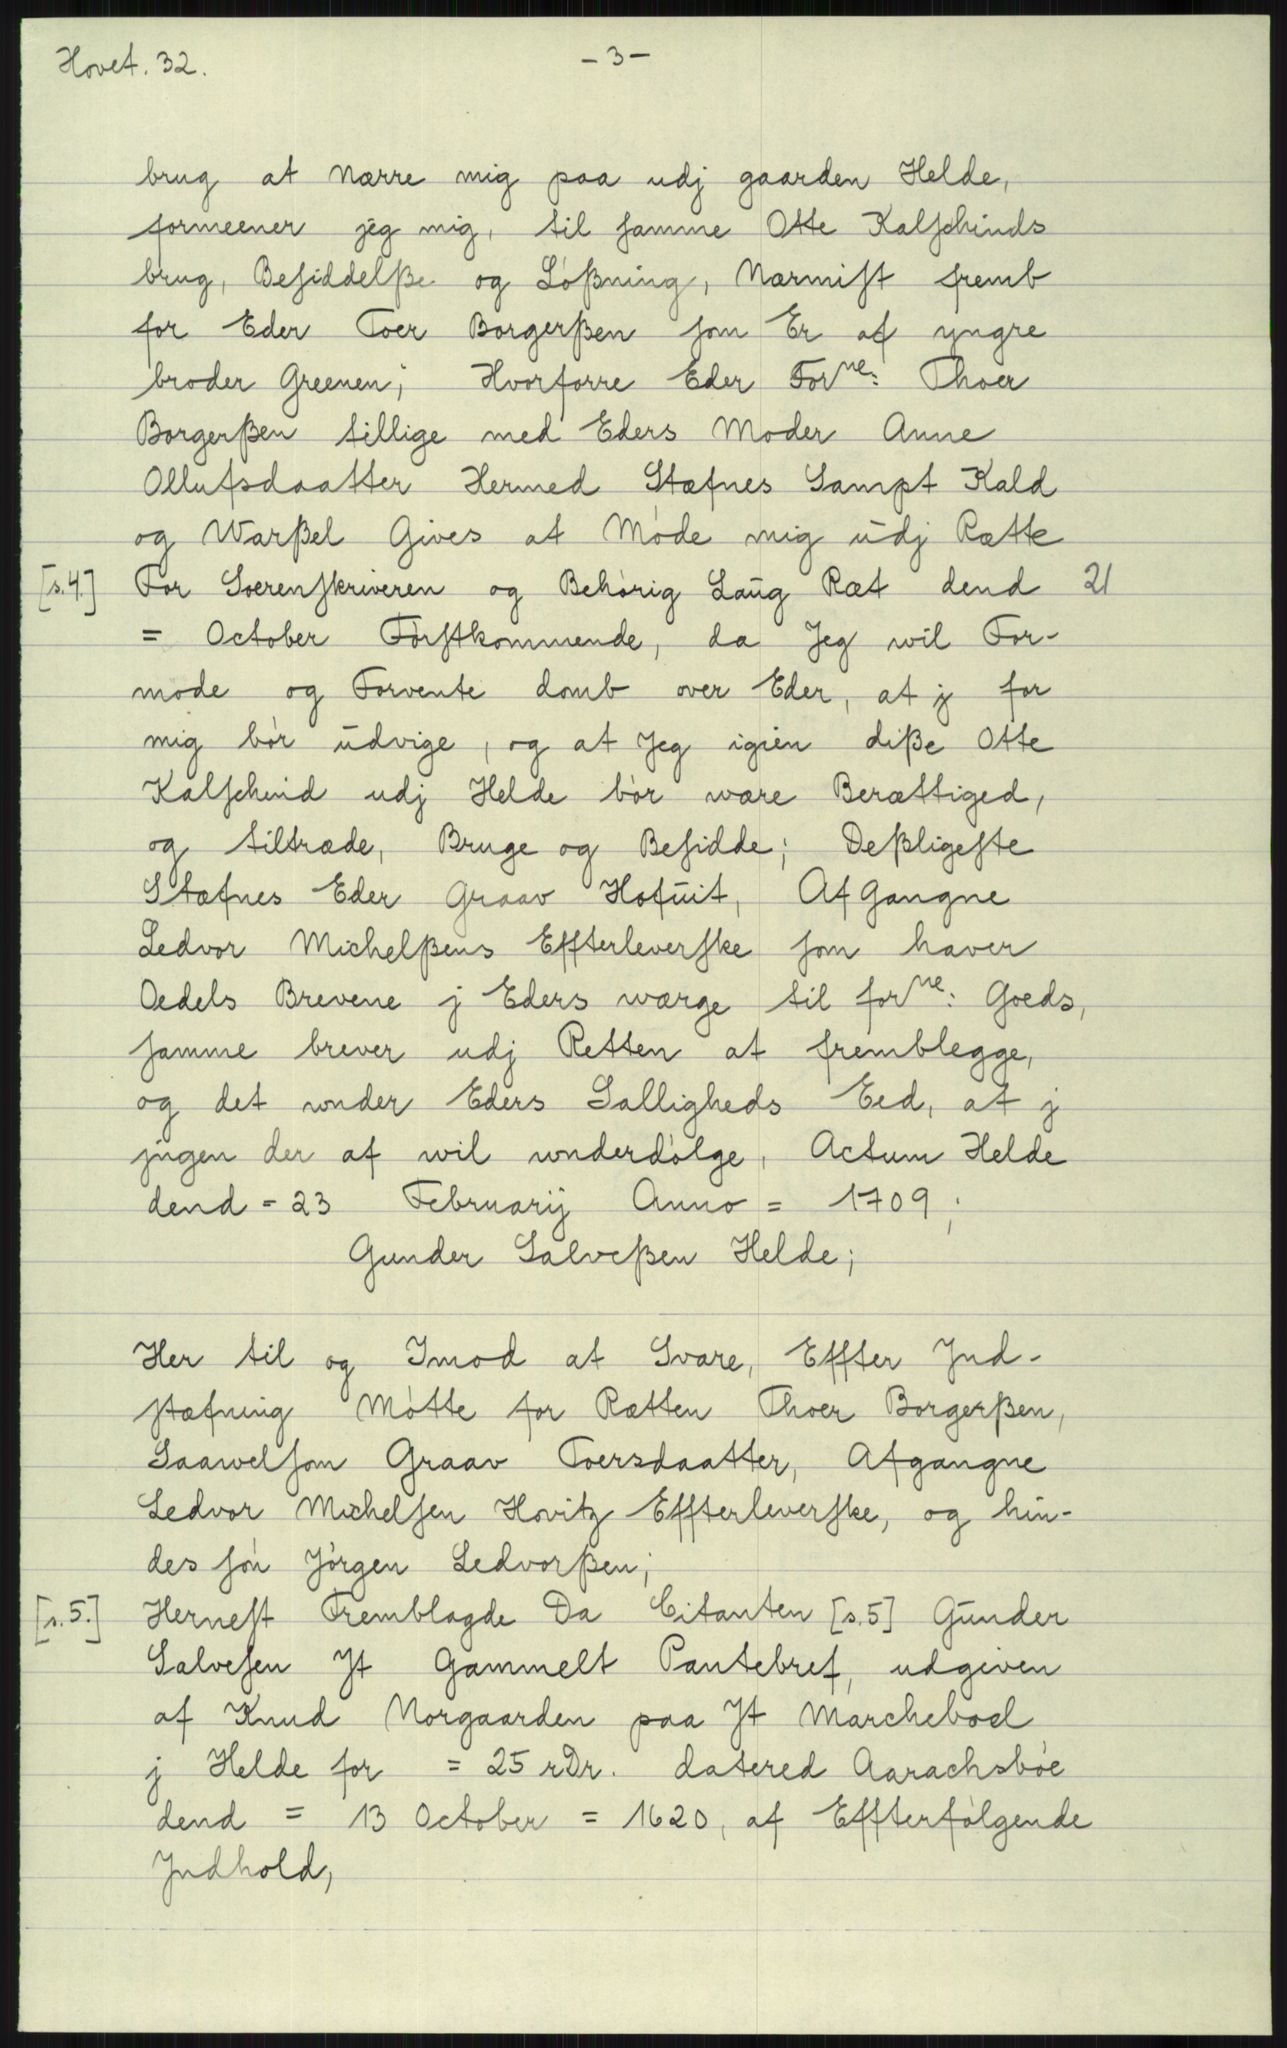 Hovet. 32.
- 3 -
brug at nærre mig paa udj gaarden Helde,
formeener jeg mig, til samme Otte Kalfschinds
brug, Besiddelße og Lößning, Nærmist fremb
for Eder Toer Borgerßen som Er af yngre
broder Greenen; Hvorforre Eder Forne: Thoer
Borgerßen tillige med Eders Moder Anne
Ollufsdaatter Hermed Stæfnes Sampt Kald
og Warßel Gives at Møde mig udj Rætte
[s.4.] For Soerenskriveren og Behørig Laug Ræt dend 21
= October Førstkommende, da Jeg wil For-
mode og Forvente domb over Eder, at j for
mig bør udvige, og at Jeg igien diße Otte
Kalfschind udj Helde bør wære Berættiged,
og tiltræde, Bruge og Besidde; Deßligeste
Stæfnes Eder Graav Hofuit, Afgangne
Ledvor Michelßens Effterleverske som haver
Oedels Brevene j Eders wærge til forne: Goeds,
samme brever udj Retten at fremblegge,
og det under Eders Salligheds Eed, at j
jngen der af wil underdølge, Actum Helde
dend = 23 Februarij Anno = 1709;
Gunder Salveßen Helde;
Her til og Imod at Svare, Effter Jnd-
stæfning Møtte for Rætten Thoer Borgerßen,
Saawelsom Graav Toersdaatter, Afgangne
Ledvor Michelsen Hovitz Effterleverske, og hin-
des søn Jörgen Ledvorßen;
[s.5.] Hernest Fremblagde Da Citanten [s.5] Gunder
Salvesen Jt Gammelt Pantebref, udgiven
af Knud Norgaarden paa Jt Marcheboel
j Helde for = 25 rDr. datered Aarachsbøe
dend = 13 October = 1620, af Effterfølgende
Jndhold,